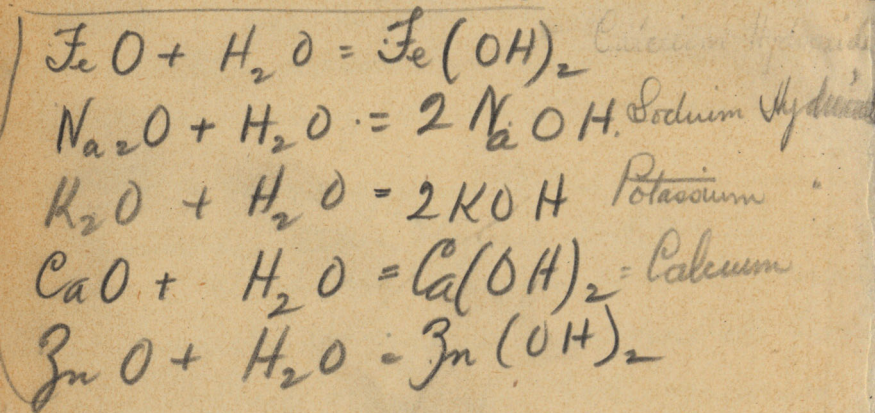 FeO + H₂O = Fe(OH)₂
Na₂O + H₂O = 2NaOH. Sodium
K₂O + H₂O = 2KOH Potassium "
CaO + H₂O = Ca(OH)₂ = Calcium
ZnO + H₂O = Zn(OH)₂